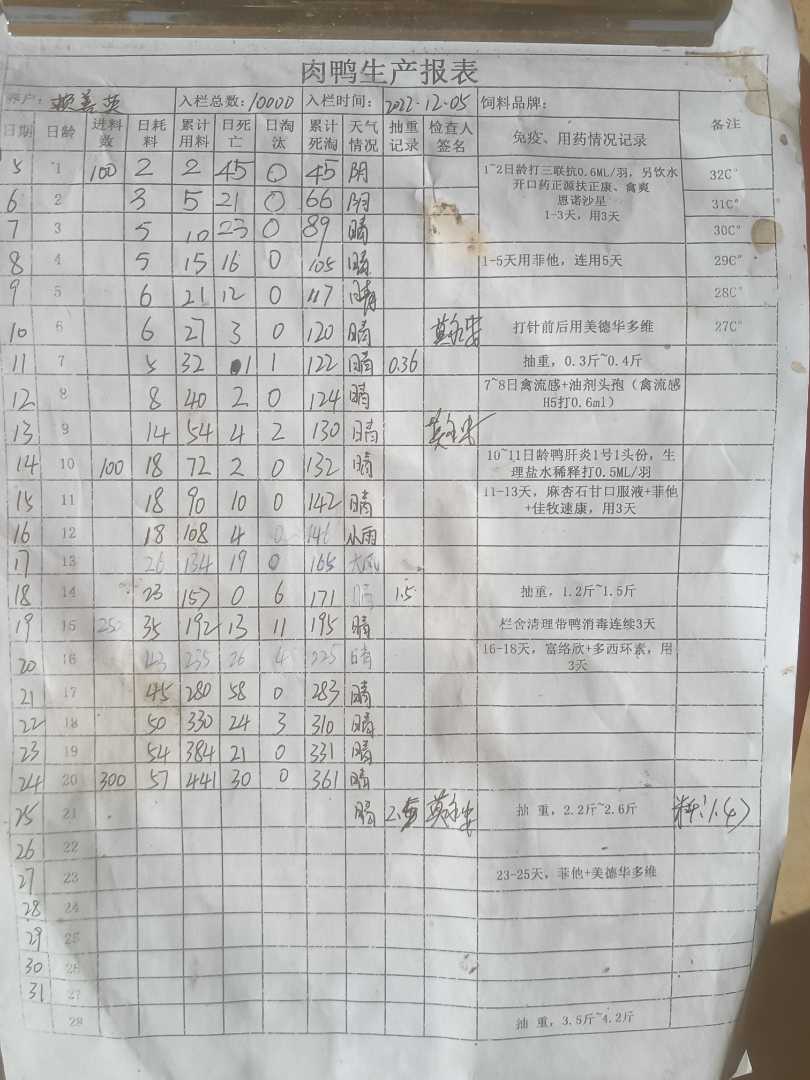 肉鸭生产报表
养户： 入栏总数：10000 入栏时间：2022-12-05 饲料品牌：
日期 日龄 进料数 日耗料 累计用料 日死亡 日淘汰 累计死淘 天气情况 抽重记录 检查人签名 免疫、用药情况记录 备注
5 1 100 2 2 45 0 45 阴 32C°
1~2日龄打三联抗0.6ML/羽，另饮水
开口药正源扶正康、禽爽
恩诺沙星
1-3天，用3天
6 2 3 5 21 0 66 阴 31C°
7 3 5 10 23 0 89 晴 30C°
8 4 5 15 16 0 105 晴 1-5天用菲他，连用5天 29C°
9 5 6 21 12 0 117 晴 28C°
10 6 6 27 3 0 120 晴 打针前后用美德华多维 27C°
11 7 5 32 1 1 122 晴 0.36 抽重，0.3斤~0.4斤
12 8 8 40 2 0 124 晴 7~8日禽流感+油剂头孢（禽流感
H5打0.6ml）
13 9 14 54 4 2 130 晴
14 10 100 18 72 2 0 132 晴 10~11日龄鸭肝炎1号1头份，生
理盐水稀释打0.5ML/羽
15 11 18 90 10 0 142 晴 11-13天，麻杏石甘口服液+菲他
+佳牧速康，用3天
16 12 18 108 4 0 146 小雨
17 13 26 134 19 0 165 大风
18 14 23 157 0 6 171 晴 1.5 抽重，1.2斤~1.5斤
19 15 250 35 192 13 11 195 晴 栏舍清理带鸭消毒连续3天
20 16 43 235 26 4 225 晴 16-18天，富络欣+多西环素，用
3天
21 17 45 280 58 0 283 晴
22 18 50 330 24 3 310 晴
23 19 54 384 21 0 331 晴
24 20 300 57 441 30 0 361 晴
25 21 晴 抽 重，2.2斤~2.6斤
26 22
27 23 23-25天，菲他+美德华多维
28 24
29 25
30 26
31 27
28 抽 重，3.5斤~4.2斤